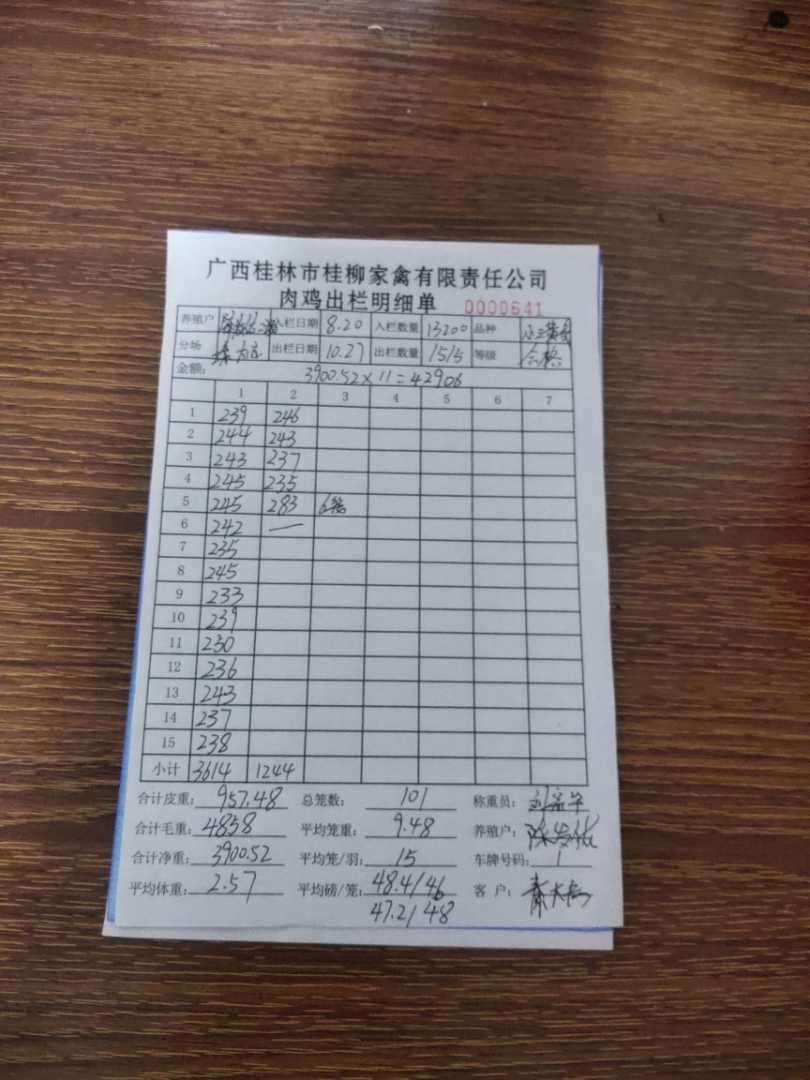 广西桂林市桂柳家禽有限责任公司
肉鸡出栏明细单 0000641
养殖户 入栏日期 8.20 入栏数量 13200 品种
分场 出栏日期 10.27 出栏数量 1515 等级 合格
金额: 3900.52×11=42906
1 2 3 4 5 6 7
1 239 246
2 244 243
3 243 237
4 245 235
5 245 283 6笼
6 242 —
7 235
8 245
9 233
10 239
11 230
12 236
13 243
14 237
15 238
小计 3614 1244
合计皮重: 957.48 总笼数: 101 称重员:
合计毛重: 4858 平均笼重: 9.48 养殖户:
合计净重: 3900.52 平均笼/羽: 15 车牌号码: 1
平均体重: 2.57 平均磅/笼: 48.4/46 客 户:
47.2/48